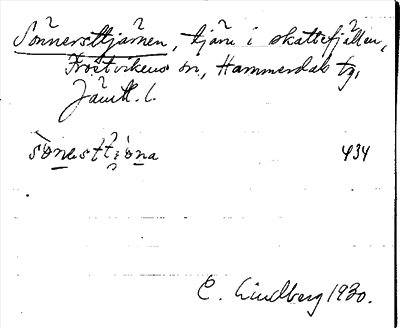 Sönnersttjärnen, tjärn i skattefjällen,
Frostvikens sn, Hammerdals tg,
Jämtl. l.
sònesttiɷna 434
C. Lindberg 1930.